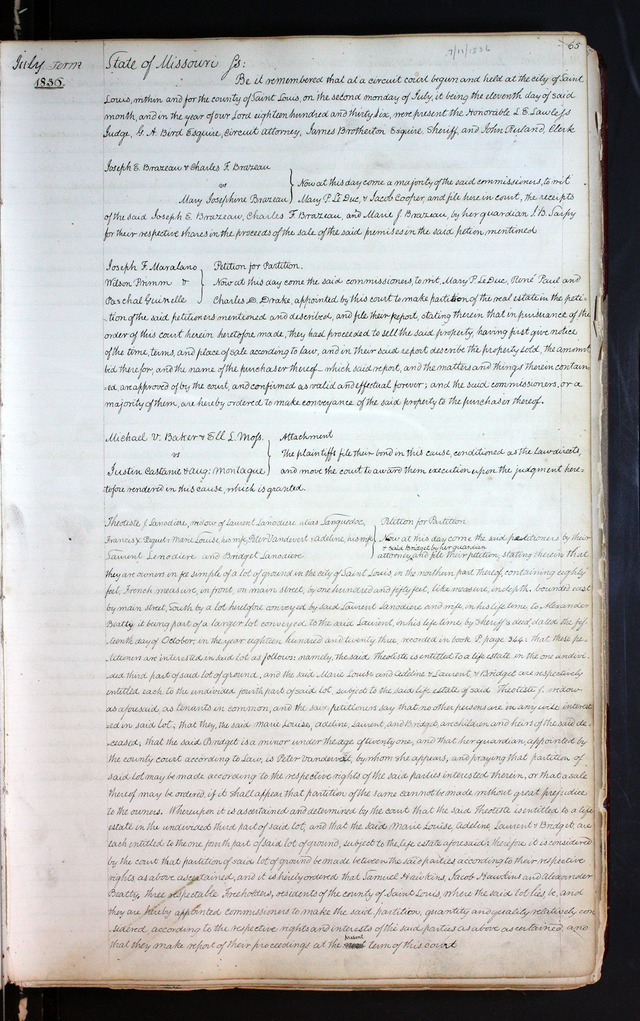 7/11/1836
65
July Term
1836.
State of Missouri ss:
Be it remembered that at a circuit court begun and held at the city of Saint
Louis, within and for the county of Saint Louis, on the second monday of July, it being the eleventh day of said
month, and in the year of our Lord eighteen hundred and thirty six, were present the Honorable L E Lawless
Judge, G. A. Bird Esquire, Circuit attorney, James Brotherton Esquire Sheriff, and John Ruland, Clerk
Joseph E. Brazeau & Charles F. Brazeau
vs
Now at this day come a majority of the said commissioners, to wit
Mary Josephine Brazeau
Mary P. Le Duc, & Jacob Cooper, and file here in court, the receipts
of the said Joseph E. Brazeau, Charles F. Brazeau, and Marie J. Brazeau, by her guardian J. B. Sarpy
for their respective shares in the proceeds of the sale of the said premises in the said petion mentioned
Joseph F. Maralano
Petition for Partition.
Wilson Primm v
Now at this day come the said commissioners, to wit, Mary P. Le Duc, René Paul and
Paschal Guinelle
Charles D. Drake, appointed by this court to make partition of the real estate in the peti-
-tion of the said petitioners mentioned and described, and file their report, stating therein that in pursuance of the
order of this court herein heretofore made, they had proceeded to sell the said property, having first give notice
of the time, terms, and place of sale according to law, and in their said report describe the property sold, the amount
bid therefor, and the name of the purchaser thereof – which said report, and the matters and things therein contain-
ed, are approved of by the court, and confirmed as valid and effectual forever; and the said commissioners, or a
majority of them, are hereby ordered to make conveyance of the said property to the purchaser thereof.
Michael V. Baker & Ell L. Moss.
Attachment
vs
The plaintiffs file their bond in this cause, conditioned as the Law directs,
Justin Castanie & aug: Montaque
and move the court to award them execution upon the judgment here-
tofore rendered in this cause, which is granted.
Theotiste J. Lanodiere, widow of Laurent Lanodiere alias Languedoc,
Petition for Partition
Francis X. & Marie Louise, his wife, Peter Vandevert & adeline, his wife
Now at this day come the said petitioners by their
& said Bridget by her guardian
Laurent Lenodiere and Bridget Lanodiere
attorney and file their petition, stating therein that
they are owners in fee simple of a lot of ground in the city of Saint Louis, in the northern part thereof, containing eighty
feet, French measure, in front, on main street, by one hundred and fifty feet, like measure, in depth. bounded east
by main street, South by a lot heretofore conveyed by said Laurent Lanodiere and wife, in his life time to Alexander
Beatty it being part of a larger lot conveyed to the said Laurent, in his life time by Sheriff's deed, dated the fif
teenth day of October, in the year eighteen hundred and twenty three, recorded in book P. page 344: that these pe-
titioners are interested in said lot as follows: namely, the said Theotiste is entitled to a life estate in the one undivi-
ded third part of said lot of ground, and the said Marie Louise and Adeline & Laurent & Bridget are respectively
entitled each to the undivided fourth part of said lot, subject to the said life estate of said Theotiste J. widow
as aforesaid, as tenants in common, and the said petitioners say that no other persons are in any wise interest
ed in said lot; that they, the said Marie Louise, adeline, Laurent, and Bridget, are children and heirs of the said de-
ceased, that the said Bridget is a minor under the age of twenty one, and that her guardian, appointed by
the county court according to law, is Peter Vandevert, by whom she appears, and praying that partition of
said lot may be made according to the respective rights of the said parties interested therein, or that a sale
thereof may be ordered, if it shall appear that partition of the same cannot be made without great prejudice
to the owners. Whereupon it is ascertained and determined by the court that the said Theotiste is entitled to a life
estate in the undivided third part of said lot, and that the said Marie Louise, Adeline Laurent & Bridget, are
each entitled to the one fourth part of said lot of ground, subject to the life estate aforesaid; therefore it is considered
by the court that partition of said lot of ground be made between the said parties according to their respective
rights as above ascertained, and it is hereby ordered that Samuel Hawkins, Jacob Hawkins and Alexander
Beatty, three respectable freeholders, residents of the county of Saint Louis, where the said lot lies, be, and
they are hereby appointed commissioners to make the said partition, quantity and quality relatively con
sidered, according to the respective rights and interests of the said parties as above ascertained, and
present
that they make report of their proceedings at the term of this court